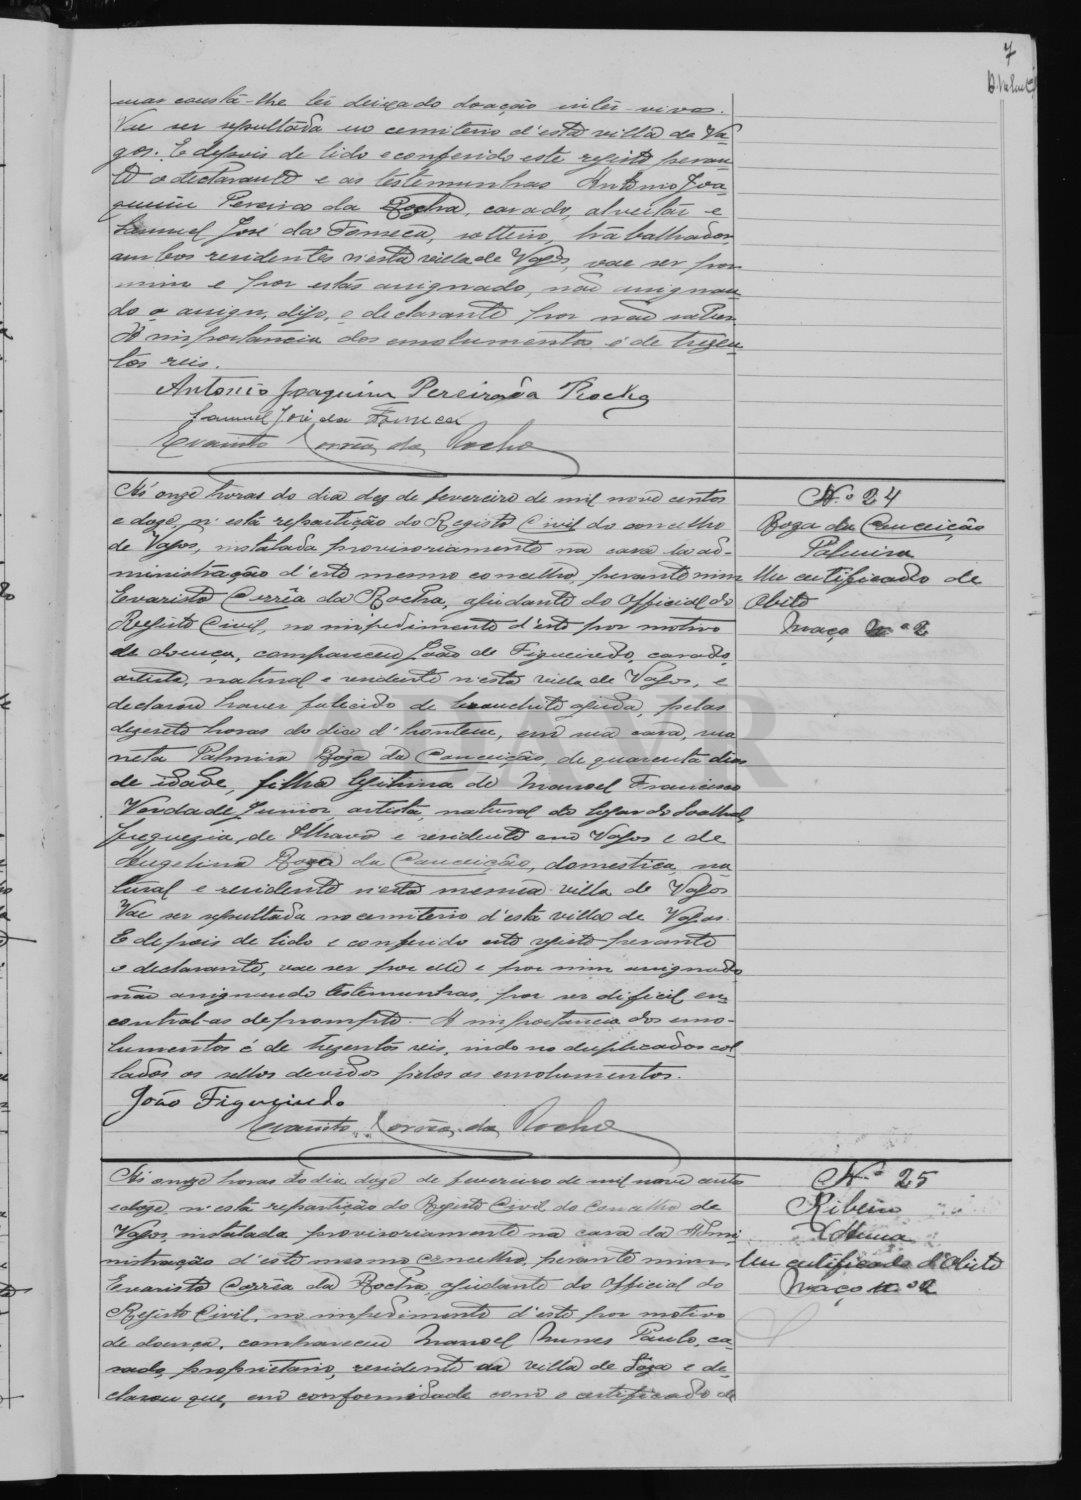 7
mas consta-lhe ter deixado doação inter-vivos.
Vae ser sepultada no cemiterio d'esta villa de Va-
gos. E depois de lido e conferido este registo peran-
te o declarante e as testemunhas Antonio Joa-
quim Pereira da Rocha, casado, alveitar e
Samuel José da Fonseca, solteiro, trabalhador,
ambos residentes n'esta villa de Vagos, vae ser por
mim e por estas assignado, não assignan-
do o assign, digo, o declarante por não saber.
A importancia dos emolumentos é de trezen-
tos reis.
Antonio Joaquim Pereira da Rocha
Samuel José da Fonseca
Evaristo Corrêa da Rocha
Nº 24
Roza da Conceição
Palmira
Um certificado de
Obito
Maço nº 2
Ás onze horas do dia dez de fevereiro de mil nove centos
e doze, n'esta repartição do Registo Civil do concelho
de Vagos, installada provisoriamente na casa da ad-
ministração d'este mesmo concelho, perante mim
Evaristo Corrêa da Rocha, ajudante do Official do
Registo Civil, no impedimento d'este por motivo
de doença, compareceu João de Figueiredo, casado,
artista, natural e residente n'esta villa de Vagos, e
declarou haver fallecido de bronchite aguda, pelas
dezesete horas do dia d'hontem, em sua casa, sua
neta Palmira Roza da Conceição, de quarenta dias
de idade, filha legitima de Manoel Francisco
Verdade Junior, artista, natural do logar do
freguezia de Ilhavo e residente em Vagos e de
Angelina Roza da Conceição, domestica, na-
tural e residente n'esta mesma villa de Vagos
Vae ser sepultada no cemiterio d'esta villa de Vagos.
E depois de lido e conferido este registo perante
o declarante, vae ser por elle e por mim assignado
não assignando testemunhas, por ser dificil en-
contral-as de prompto. A importancia dos emo-
lumentos é de trezentos reis, indo no duplicado col-
lados os sellos devidos pelos os emolumentos.
João Figueiredo
Evaristo Corrêa da Rocha
Nº 25
Ribeiro
Um certificado d'Obito
Maço nº 2
Ás onze horas do dia doze de fevereiro de mil nove centos
e doze, n'esta repartição do Registo Civil do Concelho de
Vagos, installada provisoriamente na casa da Admi-
nistração d'este mesmo Concelho, perante mim
Evaristo Corrêa da Rocha, ajudante do Official do
Registo Civil, no impedimento d'este por motivo
de doença, compareceu Manoel Nunes Paulo, ca-
sado, proprietario, residente na villa de Soza e de-
clarou que, em conformidade com o certificado de